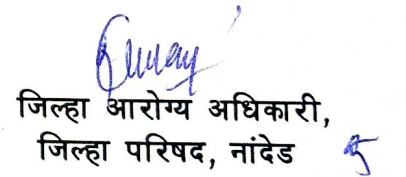 जिल्हा आरोग्य अधिकारी,
जिल्हा परिषद, नांदेड